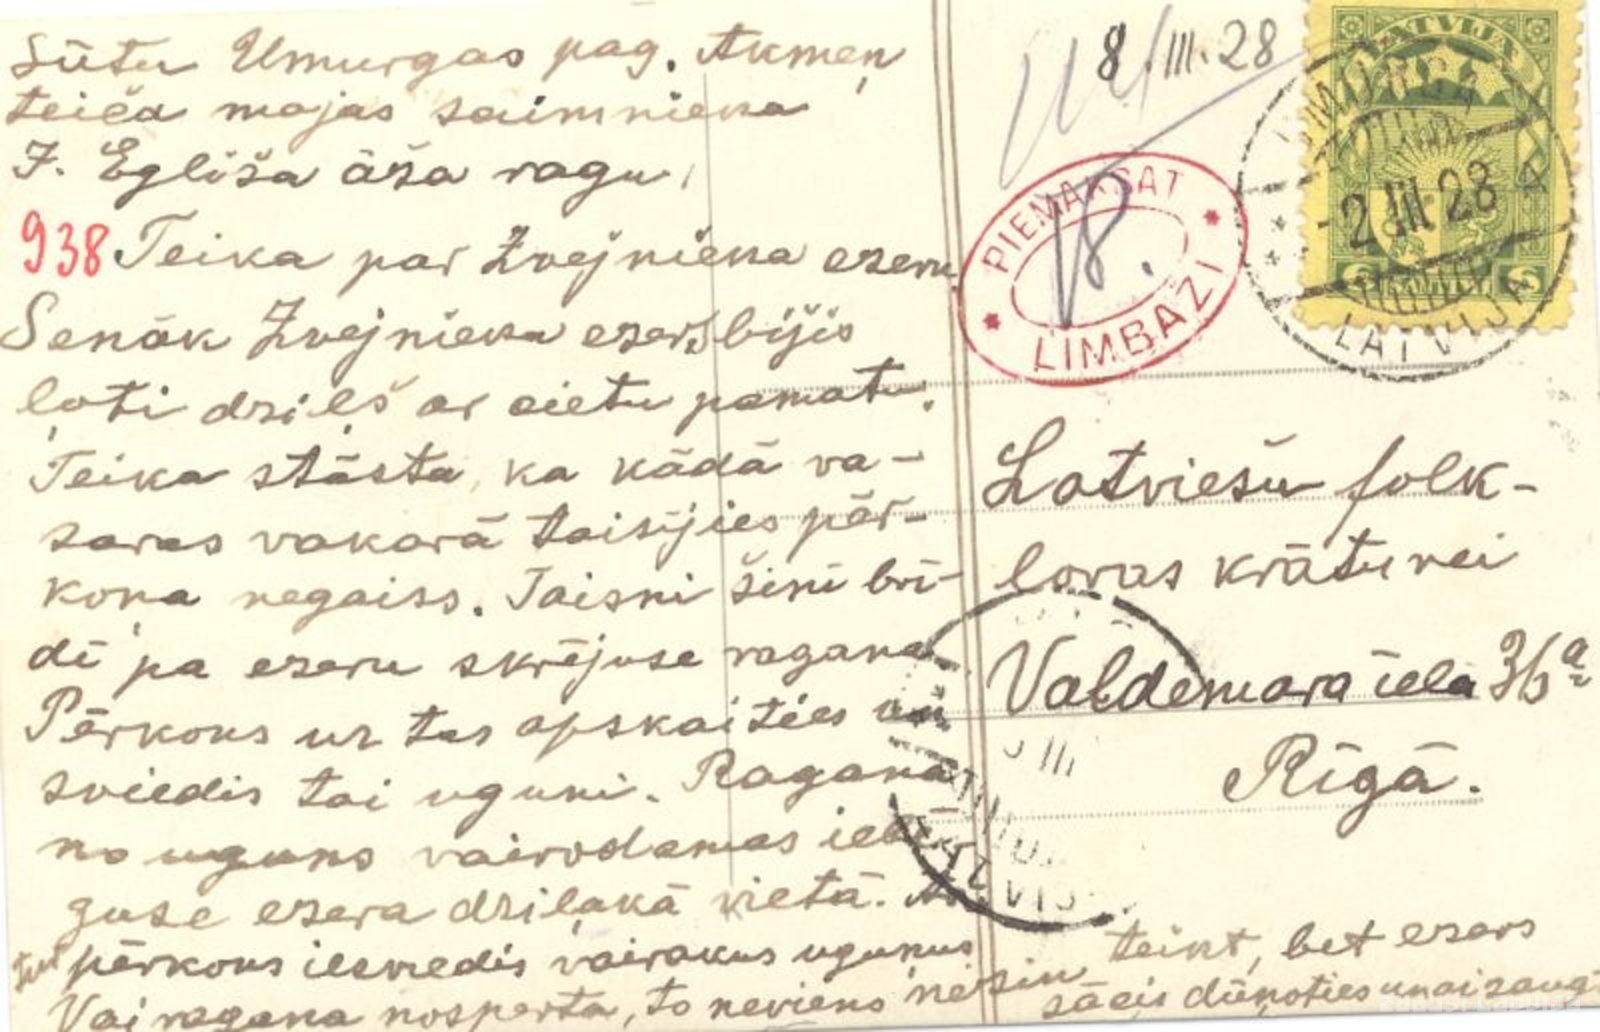 Sūtu Umurgas pag. Akmeņ
teiča mājas saimnieka
J. Egliša āža ragu.
938 Teika par Zvejnieka ezeru
Senāk Zvejnieka ezers bijis
ļoti dziļš ar cietu pamatu.
Teika stāsta, ka kādā va-
saras vakarā taisijies pēr-
kona negaiss. Taisni šinī brī-
dī pa ezeru skrējuse ragana
Pērkons uz tas apskaities un
sviedis tai uguni. Ragana
no uguns vairodamas ielē
guse ezera dziļakā vietā.
tur pērkons iesviedis vairakus ugunus
Vai ragana nosperta, to neviens nezin teikt, bet ezers
sācis dūņoties un aizaugt
8/III.28
PIEMAKSAT
LIMBAŽI
UMURGA
-2.III.28
LATVIJA
LATVIJA
6 6
Latviešu folk-
loras krātuvei
Valdemara iela 36a
Rīgā.
III